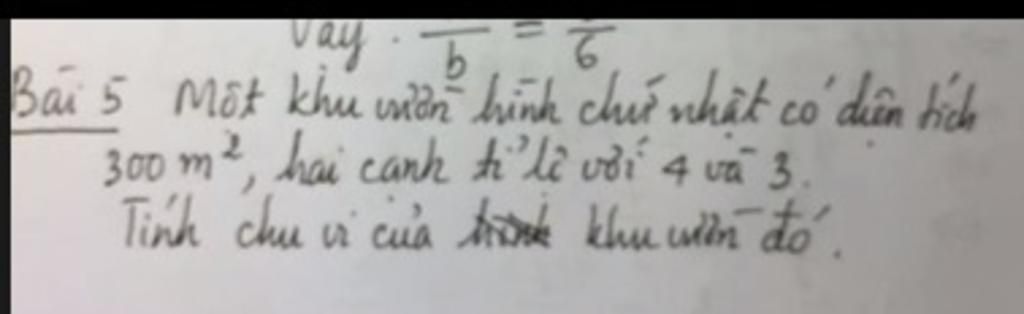 Vậy . — = —
b 6
Bài 5 Một khu vườn hình chữ nhật có diện tích
300 m², hai cạnh tỉ lệ với 4 và 3.
Tính chu vi của khu vườn đó.